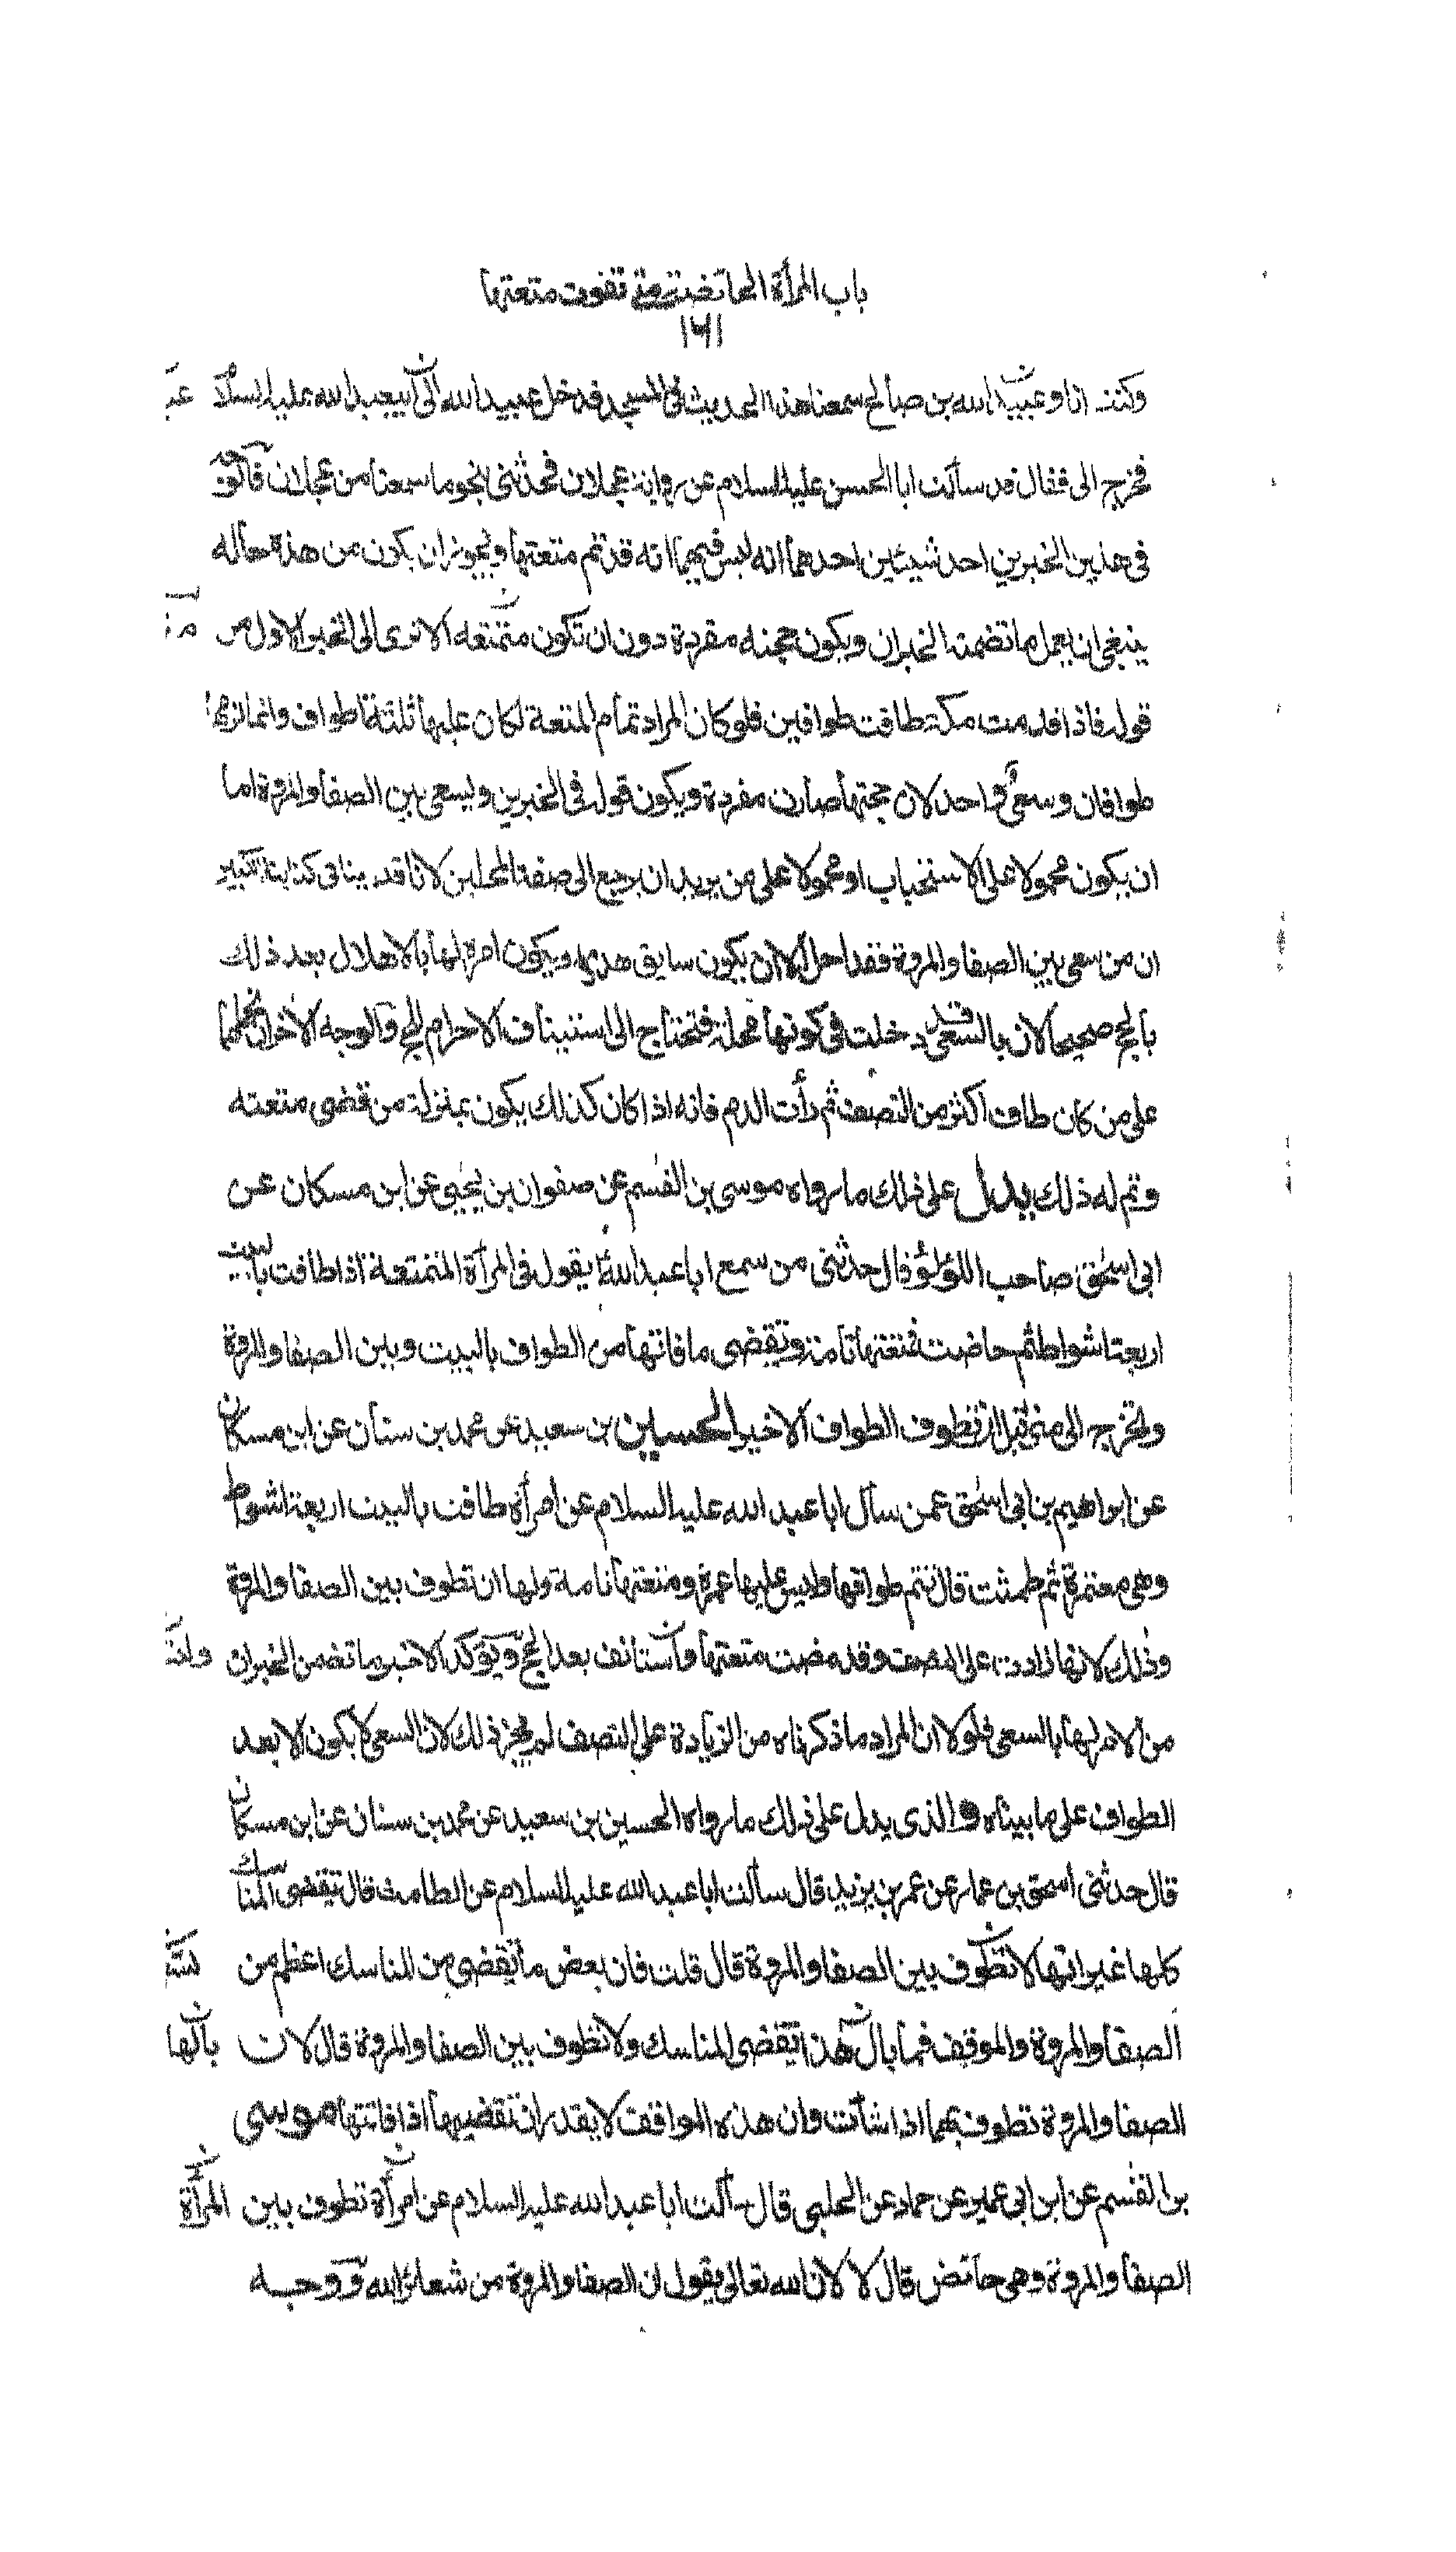 باب المرأة الحائضة متى تفوت متعتها
١٦١
وكنت انا وعبيد الله بن صالح سمعنا هذا الحديث فى المسجد فدخل عبيد الله الى ابيعبد الله عليه السلام
فخرج الى فقال قد سألت ابا الحسن عليه السلام عن رواية عجلان فحدثنى بنحو ما سمعنا من عجلان فالوجه
فى هذين الخبرين احد شيئين احدهما انه ليس فيهما انه قد تم متعتها ويجوز ان يكون من هذه حاله
ينبغى ان يعمل ما تضمنه الخبران ويكون حجته مفردة دون ان تكون متمتعه الا ترى الى الخبر الاول من
قوله فاذا قدمت مكة طافت طوافين فلو كان المراد تمام المتعة لكان عليها ثلثة اطواف وانما
طوافان وسعى واحد لان حجتها صارت مفردة ويكون قوله فى الخبرين وليسعى بين الصفا والمروة اما
ان يكون محمولا على الاستحباب او محمولا على من يريد ان يرجع الى صفة المحلين لانا قد بينا فى كتابنا الكبير
ان من سعى بين الصفا والمروة فقد احل الا ان يكون سايق هدى ويكون امره لها بالاهلال بعد ذلك
بالحج صحيحا لان بالسعى قد دخلت فى كونها محلة فتحتاج الى استيناف الاحرام للحج والوجه الاخر ان نحملهما
على من كان طاف اكثر من النصف ثم رأت الدم فانه اذا كان كذلك يكون بمنزلة من قضى متعته
وتم له ذلك يدل على ذلك ما رواه موسى بن القسم عن صفوان بن يحيى عن ابن مسكان عن
ابى اسحق صاحب اللؤلؤ قال حدثنى من سمع ابا عبد الله يقول فى المرأة المتمتعة اذا طافت بالبيت
اربعة اشواط ثم حاضت فمتعتها تامة وتقضى ما فاتها من الطواف بالبيت وبين الصفا والمروة
وتخرج الى منى قبل ان تطوف الطواف الاخير الحسين بن سعيد عن محمد بن سنان عن ابن مسكان
عن ابراهيم بن ابى اسحق عمن سأل ابا عبد الله عليه السلام عن امرأة طافت بالبيت اربعة اشواط
وهى معتمرة ثم طمثت قال تتم طوافها وليس عليها عمرة ومتعتها تامة ولها ان تطوف بين الصفا والمروة
وذلك لانها زادت على النصف وقد مضت متعتها ولتستانف بعد الحج ويؤكد الاخير ما تضمن الخبران
من الامر لها بالسعى فلولا ان المراد ما ذكرناه من الزيادة على النصف لم يجز ذلك لان السعى لا يكون الا بعد
الطواف على ما بيناه والذى يدل على ذلك ما رواه الحسين بن سعيد عن محمد بن سنان عن ابن مسكان
قال حدثنى اسحق بن عمار عن عمر بن يزيد قال سألت ابا عبد الله عليه السلام عن الطامث قال تقضى المناسك
كلها غير انها لا تطوف بين الصفا والمروة قال قلت فان بعض ما تقضى من المناسك اعظم من
الصفا والمروة والموقف فما بالها تقضى المناسك ولا تطوف بين الصفا والمروة قال لان
الصفا والمروة تطوف بهما اذا شائت وان هذه المواقف لا يقدر ان تقضيها اذا فاتتها موسى
بن القسم عن ابن ابى عمير عن حماد عن الحلبى قال سألت ابا عبد الله عليه السلام عن امرأة تطوف بين المرأة
الصفا والمروة وهى حائض قال لا لان الله تعالى يقول ان الصفا والمروة من شعائر الله فوجه